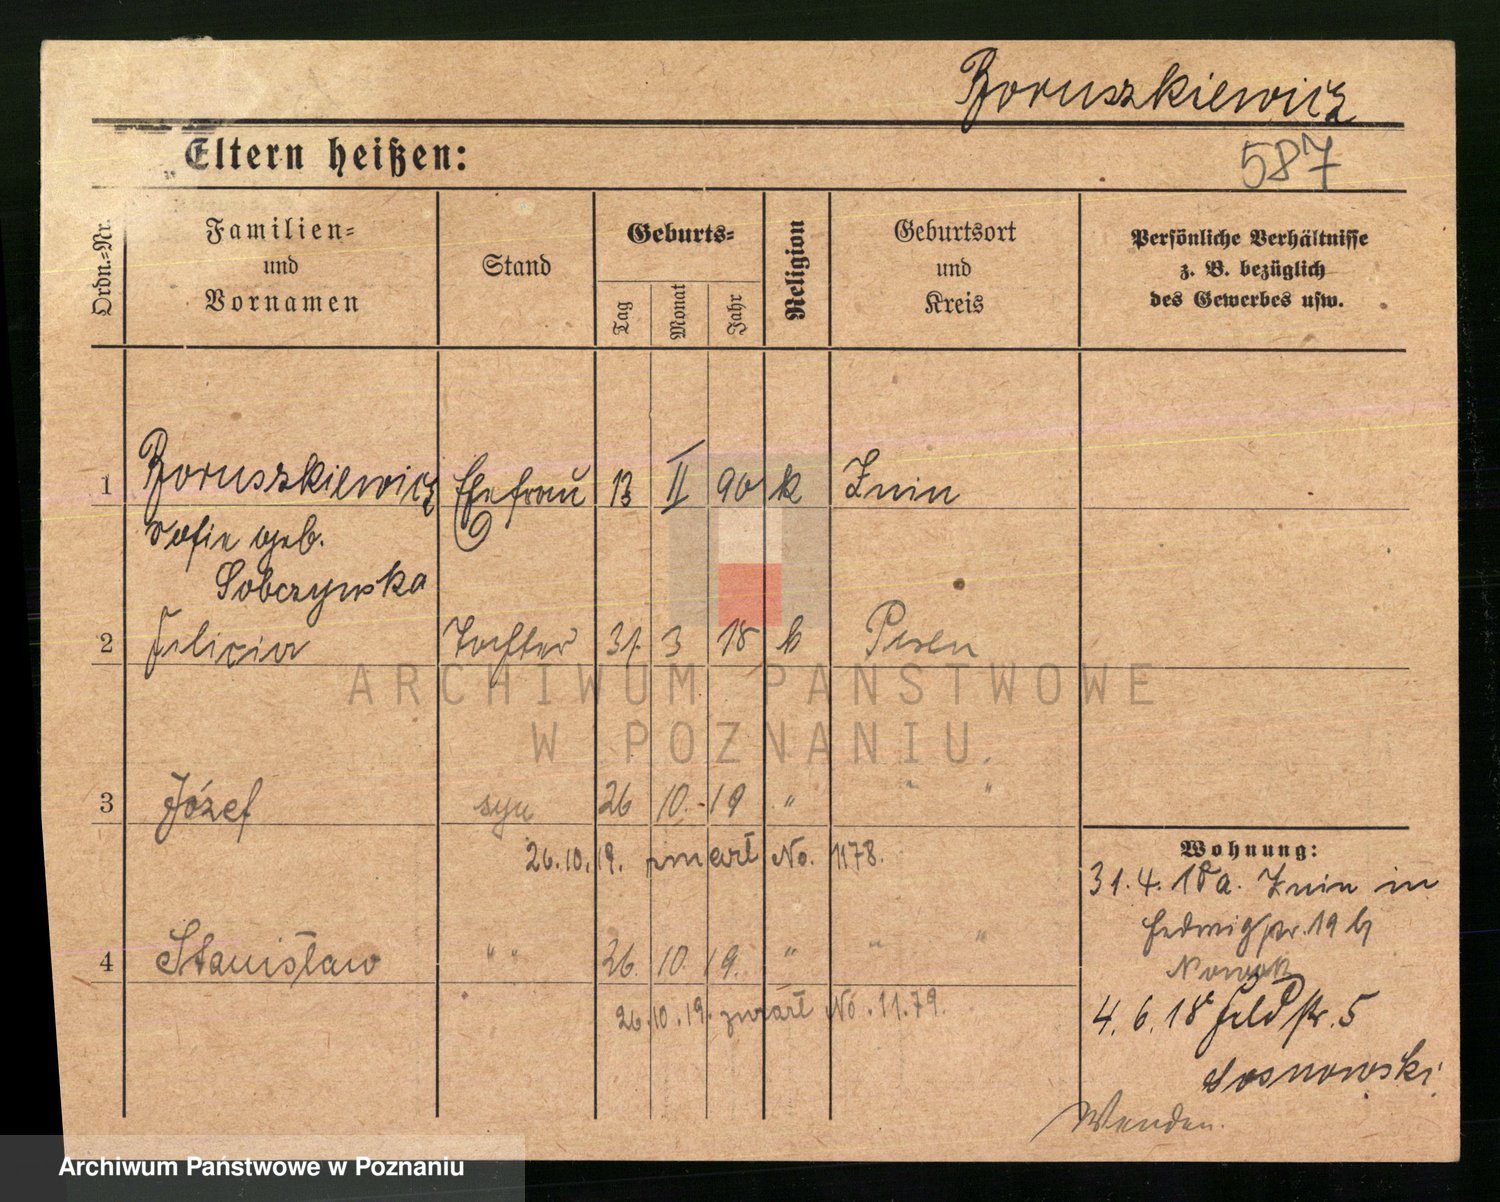 Boruszkiewicz
Eltern heißen:
587
Ordn.-Nr.
Familien-
und
Vornamen
Stand
Geburts-
Tag
Monat
Jahr
Religion
Geburtsort
und
Kreis
Persönliche Verhältnisse
z. B. bezüglich
des Gewerbes usw.
1 Boruszkiewicz Ehefrau 13 II 90 k Znin
Sofie geb.
Sobczynska
2 Felicia Tochter 31. 3 18 k Posen
3 Józef syn 26 10. 19 " " "
26.10.19. zmarł No. 1178.
4 Stanisław " " 26. 10. 19. " " "
26.10.19. zmarł No. 1179.
Wohnung:
31.4.18 a. Znin in
Hedwigstr. 19 b/
Nowak
4.6.18 Feldstr. 5
Sosnowski
Wenden.
ARCHIWUM PAŃSTWOWE
W POZNANIU
Archiwum Państwowe w Poznaniu